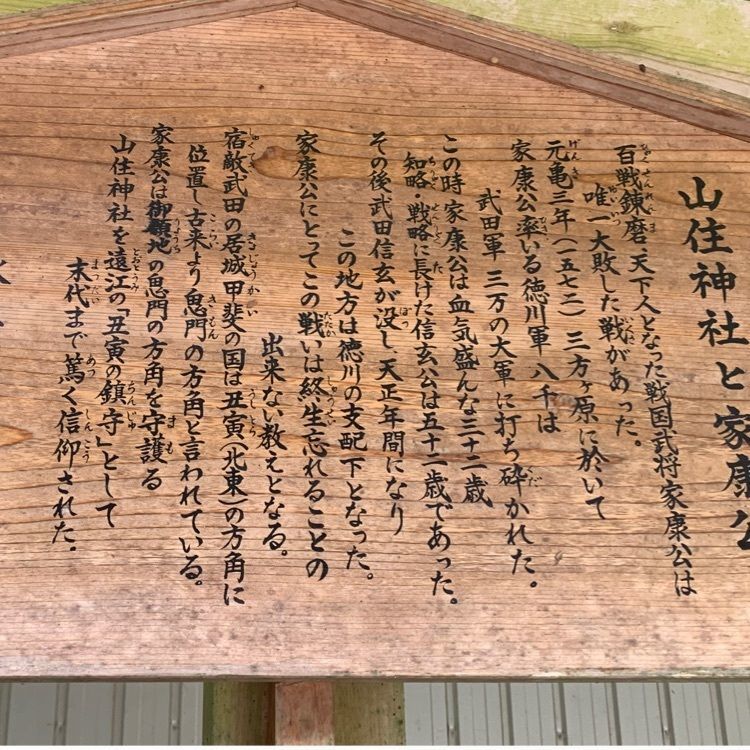 山住神社と家康公
百戦錬磨・天下人となった戦国武将家康公は
唯一大敗した戦があった。
元亀三年(一五七二) 三方ヶ原に於いて
家康公率いる徳川軍 八千は
武田軍 三万の大軍に打ち砕かれた。
この時 家康公は血気盛んな三十二歳
知略・戦略に長けた信玄公は五十二歳であった。
その後武田信玄が没し 天正年間になり
この地方は徳川の支配下となった。
家康公にとってこの戦いは終生忘れることの
出来ない教えとなる。
宿敵武田の居城甲斐の国は丑寅(北東)の方角に
位置し古来より鬼門の方角と言われている。
家康公は御領地の鬼門の方角を守護る
山住神社を遠江の「丑寅の鎮守」として
末代まで篤く信仰された.